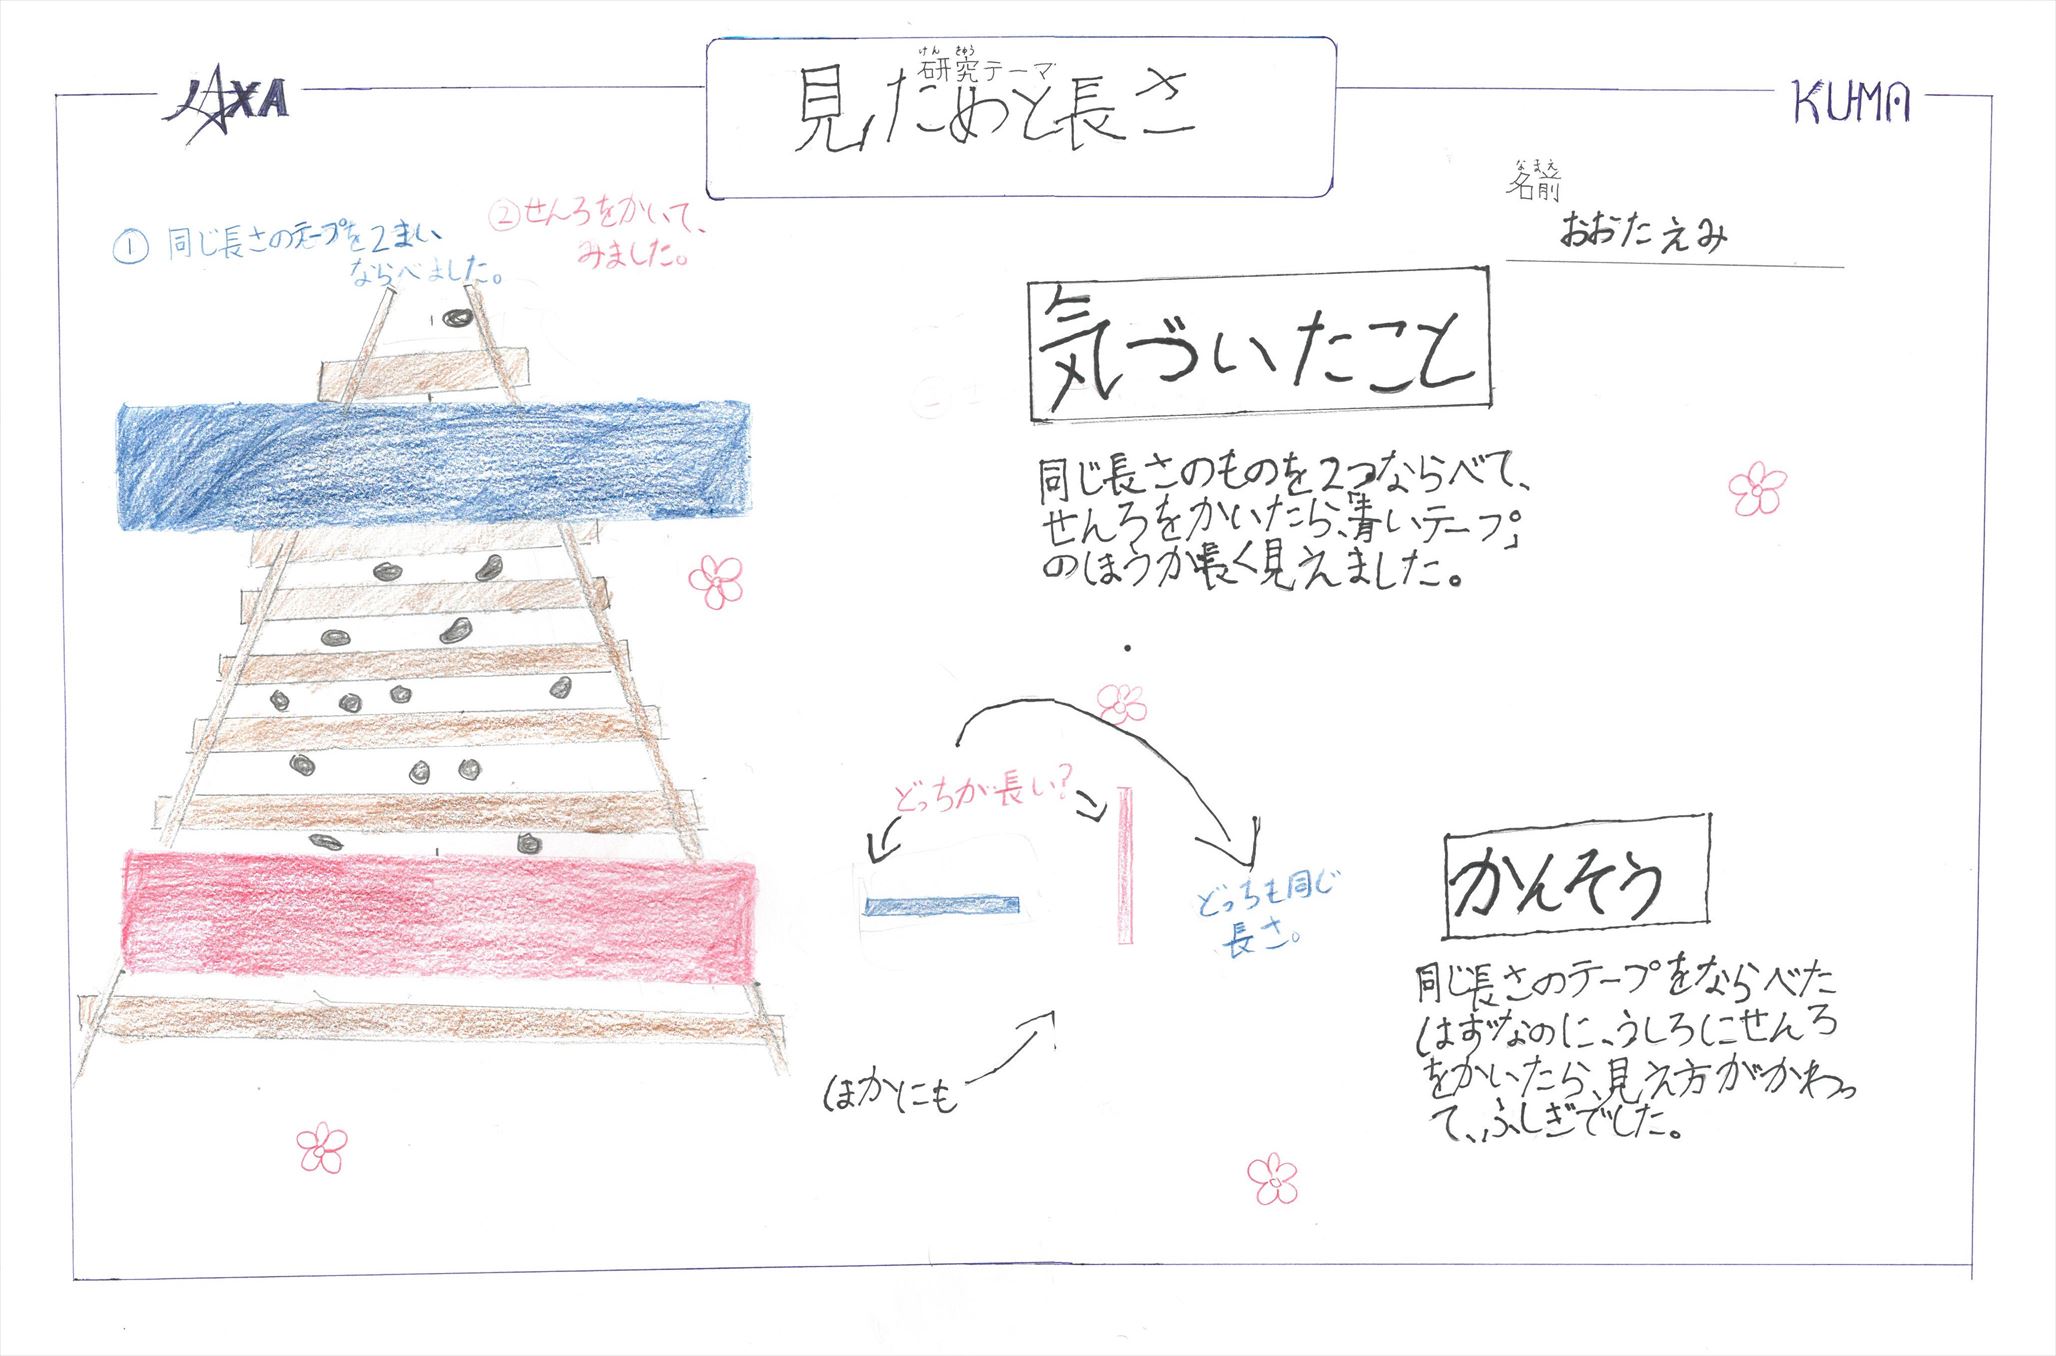 JAXA
けんきゅう
研究テーマ
見ためと長さ
KUMA
なまえ
名前
おおたえみ
① 同じ長さのテープを2まい
ならべました。
②せんろをかいて、
みました。
気づいたこと
同じ長さのものを2つならべて、
せんろをかいたら、「青いテープ」
のほうが長く見えました。
どっちが長い?
どっちも同じ
長さ。
ほかにも
かんそう
同じ長さのテープをならべた
はずなのに、うしろにせんろ
をかいたら、見え方がかわっ
て、ふしぎでした。